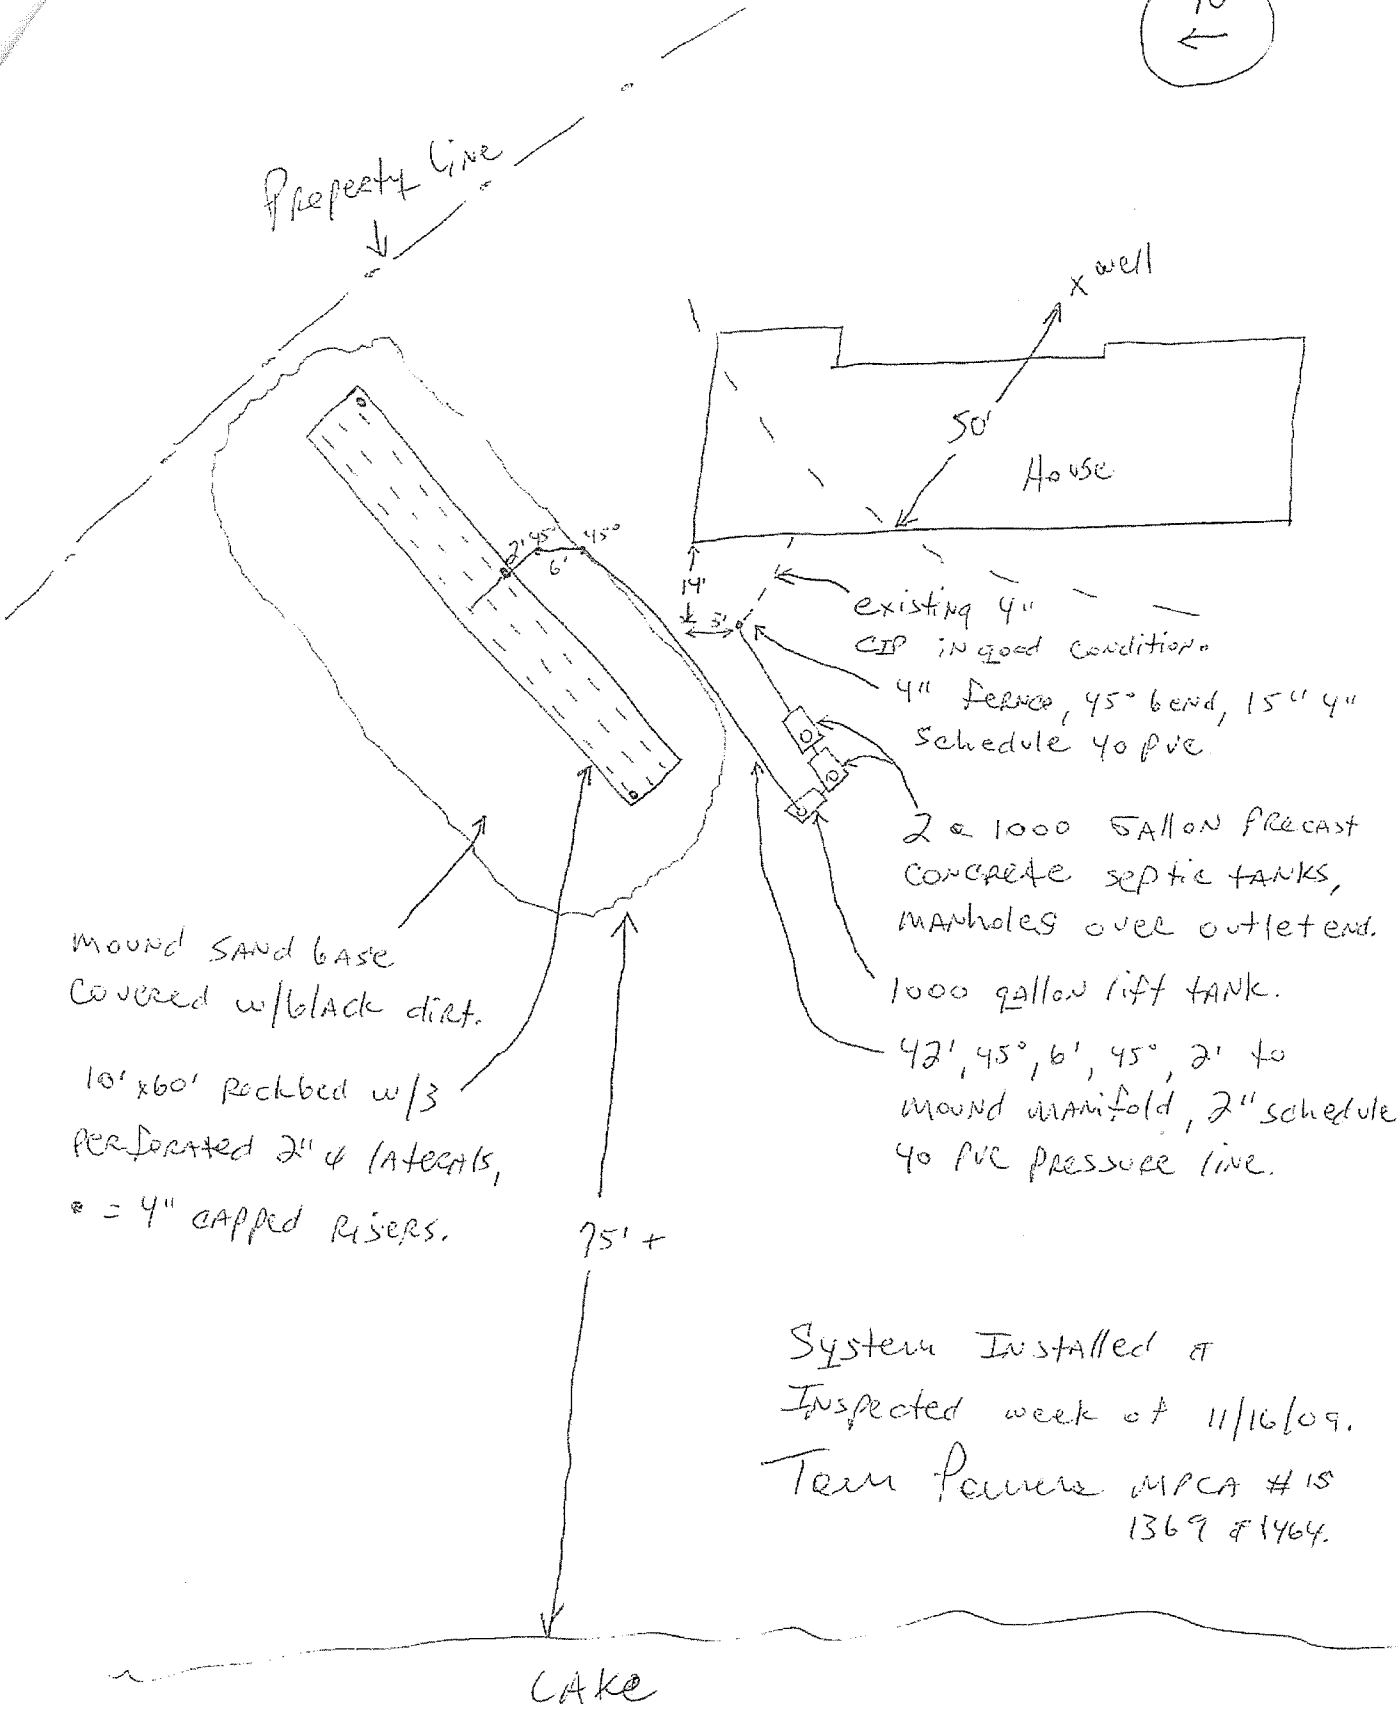 N
Property Line
x well
50'
House
2' 45° 45°
6'
14'
5'
existing 4"
CIP in good condition.
4" fernco, 45° bend, 15" 4"
Schedule 40 pvc
2 @ 1000 gallon precast
concrete septic tanks,
manholes over outlet end.
1000 gallon lift tank.
42', 45°, 6', 45°, 2' to
mound manifold, 2" schedule
40 PVC pressure line.
mound sand base
covered w/black dirt.
10'x60' Rockbed w/3
perforated 2" laterals,
• = 4" capped risers.
75' +
System Installed &
Inspected week of 11/16/09.
Tom MPCA #'s
1369 & 1464.
Lake